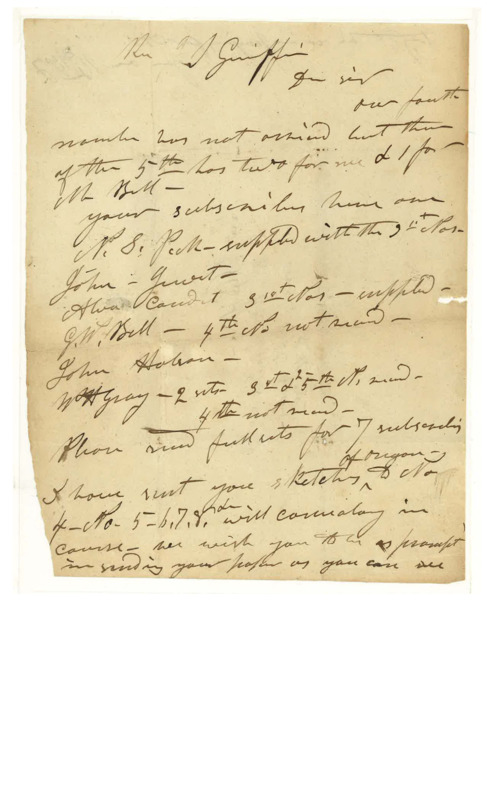 Rev J S Griffin
Dr sir
our fourth
number has not arrived but there
of the 5th has two for me & 1 for
Mr Bell —
your subscribers here are
N. S. Peck — supplied with the 3 1st Nos —
John — Jewet —
Alva Condit 3 1st Nos — supplied —
G. W. Bell — 4th No not recd —
John Hobson —
W H Gray — 2 sets 3 1st & 2 5th No. recd —
4th not recd —
Please send full sets for 7 subscribers
of oregon —
I have sent you sketches to No
4 — No — 5 — 6, 7, 8, will come along in
course — we wish you to be as prompt
in sending your paper as you can see